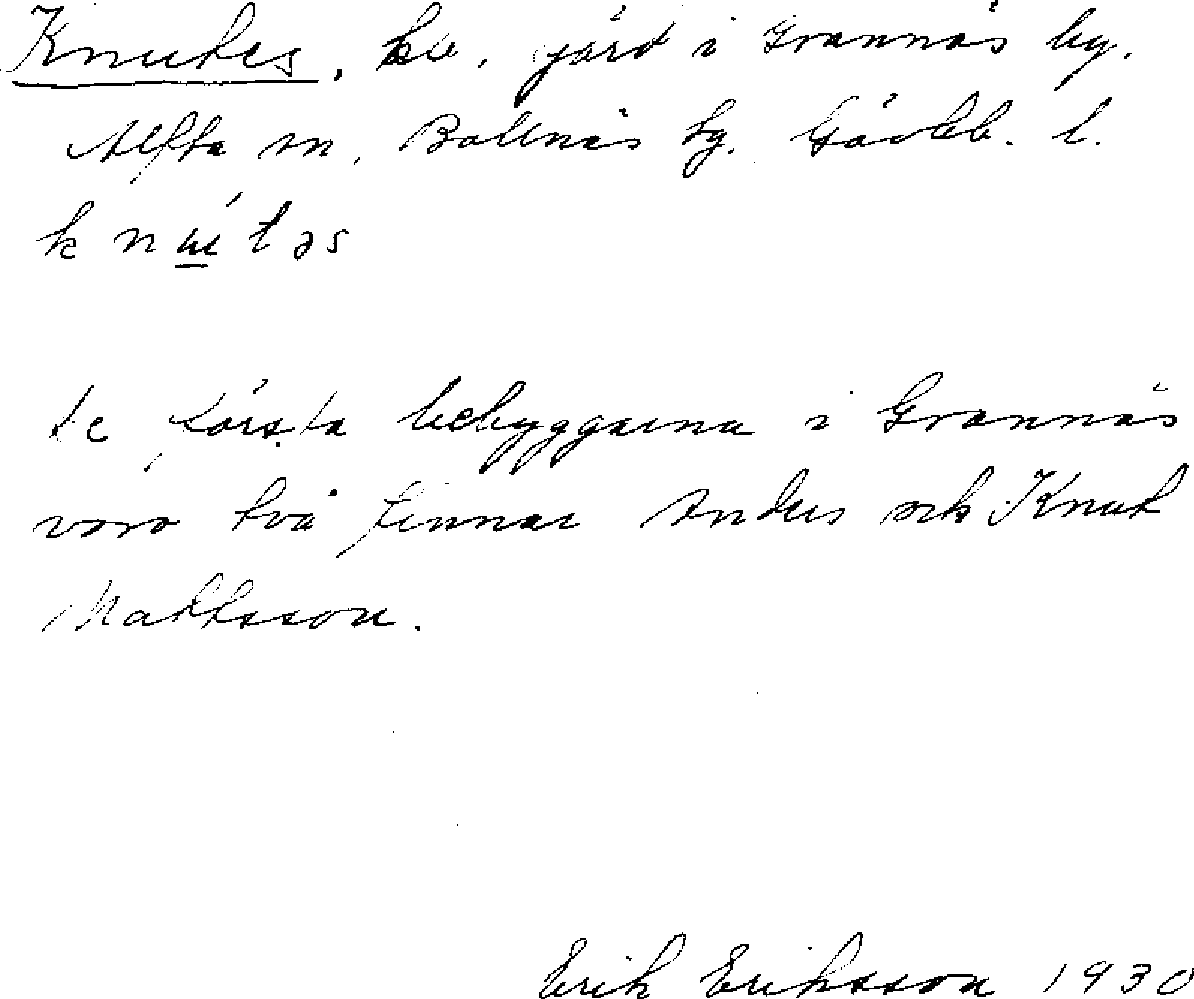 Knutes, bef. gård i Grannäs by.
Alfta sn, Bollnäs tg. Gävleb. l.
k n u t ə s
de första bebyggarna i Grannäs
voro två finnar Anders och Knut
Mattsson.
Erik Eriksson 1930